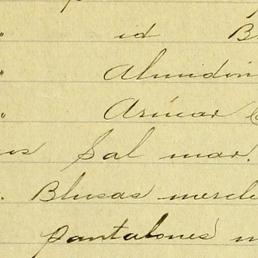 " id B
" Almidón
" Azúcar
os Sal mar.
. Blusas mercli
pantalones m